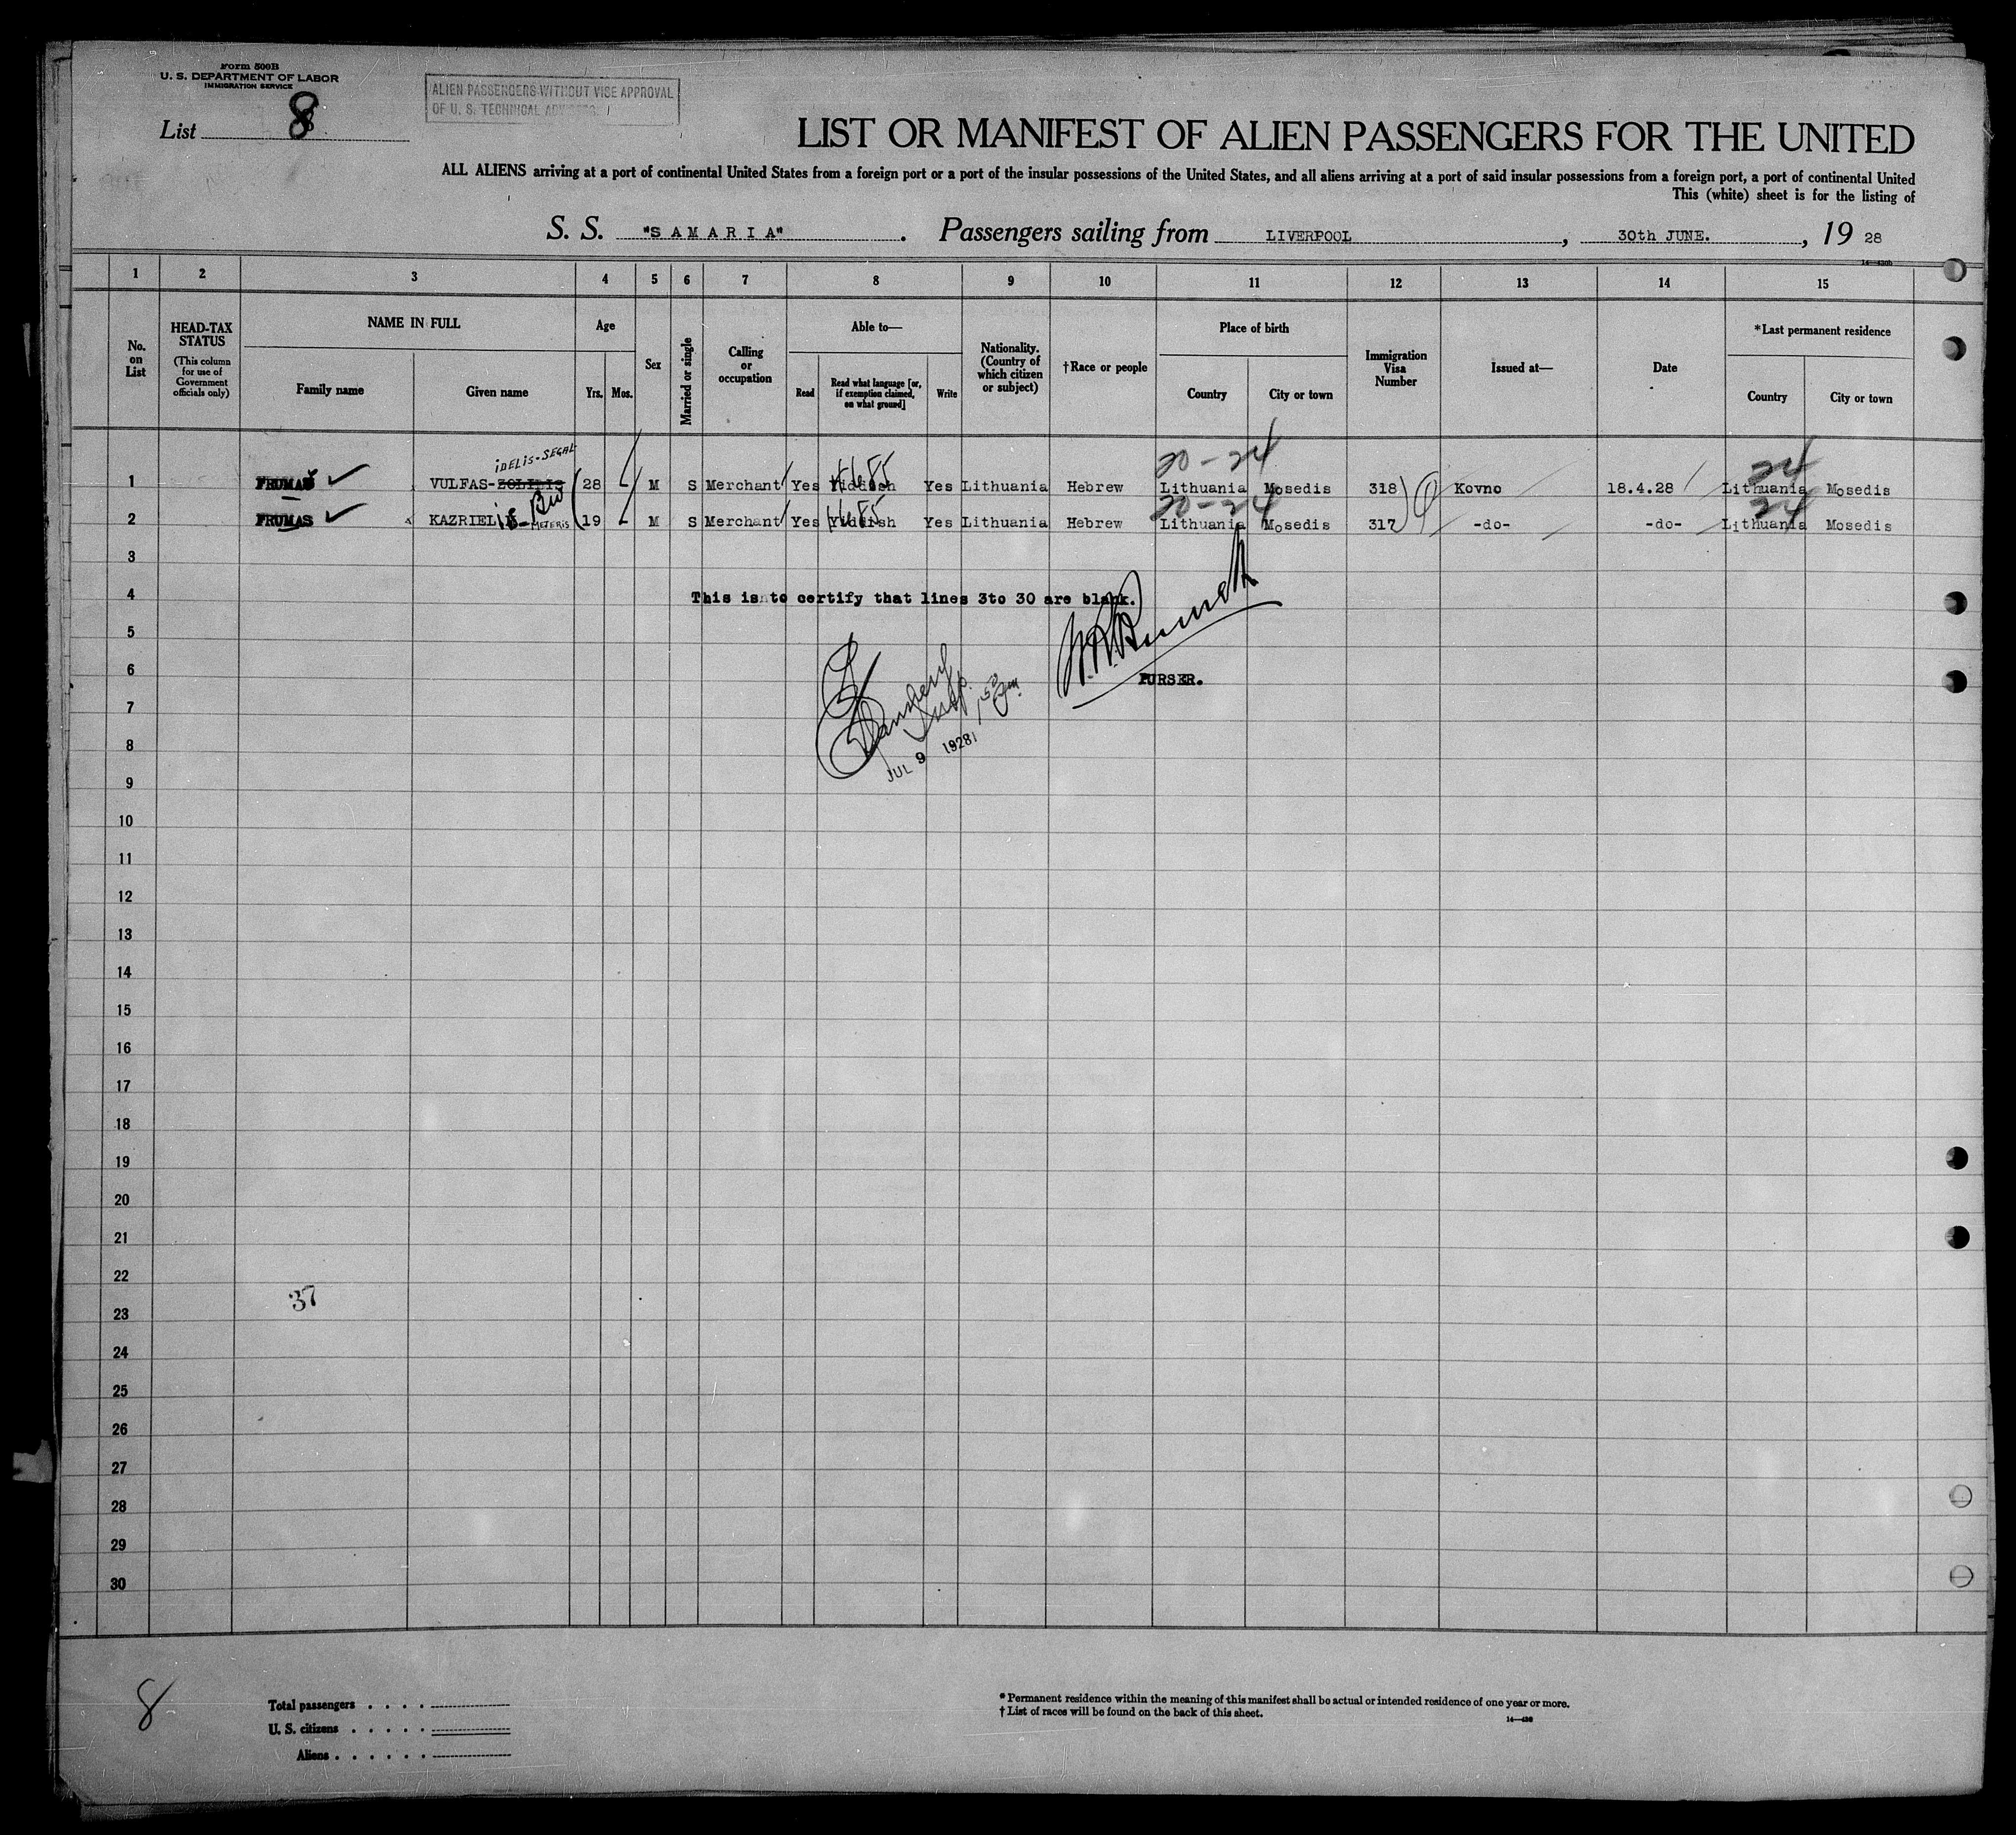 Form 500B
U. S. DEPARTMENT OF LABOR
IMMIGRATION SERVICE
ALIEN PASSENGERS WITHOUT VISE APPROVAL
OF U. S. TECHNICAL
List 8
LIST OR MANIFEST OF ALIEN PASSENGERS FOR THE UNITED
ALL ALIENS arriving at a port of continental United States from a foreign port or a port of the insular possessions of the United States, and all aliens arriving at a port of said insular possessions from a foreign port, a port of continental United
This (white) sheet is for the listing of
S. S. "SAMARIA". Passengers sailing from LIVERPOOL, 30th JUNE., 19 28
1 2 3 4 5 6 7 8 9 10 11 12 13 14 15
No. on List
HEAD-TAX STATUS
(This column for use of Government officials only)
NAME IN FULL
Family name
Given name
Age
Yrs.
Mos.
Sex
Married or single
Calling or occupation
Able to—
Read
Read what language [or, if exemption claimed, on what ground]
Write
Nationality. (Country of which citizen or subject)
†Race or people
Place of birth
Country
City or town
Immigration Visa Number
Issued at—
Date
*Last permanent residence
Country
City or town
IDELIS-SEGAL
1 FRUMAS VULFAS- 28 M S Merchant Yes Yiddish Yes Lithuania Hebrew Lithuania Mosedis 318 Kovno 18.4.28 Lithuania Mosedis
2 FRUMAS KAZRIEL METERIS 19 M S Merchant Yes Yiddish Yes Lithuania Hebrew Lithuania Mosedis 317 -do- -do- Lithuania Mosedis
3
4 This is to certify that lines 3to 30 are blank.
5
6 PURSER.
7
8 JUL 9 1928
9
10
11
12
13
14
15
16
17
18
19
20
21
22
37
23
24
25
26
27
28
29
30
8
Total passengers
U. S. citizens
Aliens
* Permanent residence within the meaning of this manifest shall be actual or intended residence of one year or more.
† List of races will be found on the back of this sheet.